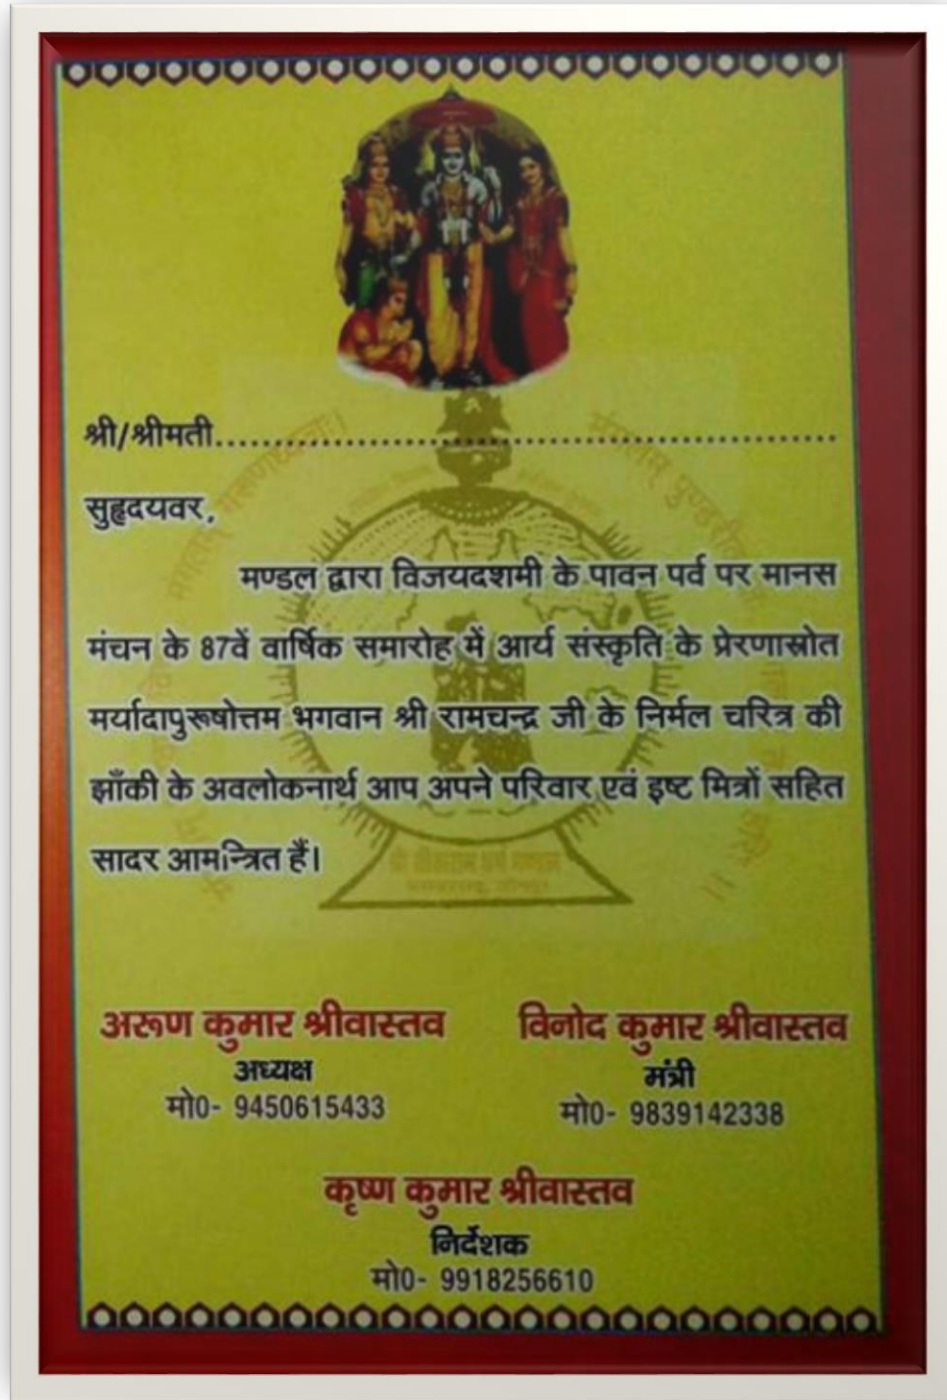 श्री/श्रीमती........................................................
सुहृदयवर,
मण्डल द्वारा विजयदशमी के पावन पर्व पर मानस
मंचन के 87वें वार्षिक समारोह में आर्य संस्कृति के प्रेरणास्रोत
मर्यादापुरूषोत्तम भगवान श्री रामचन्द्र जी के निर्मल चरित्र की
झाँकी के अवलोकनार्थ आप अपने परिवार एवं इष्ट मित्रों सहित
सादर आमन्त्रित हैं।
अरूण कुमार श्रीवास्तव
अध्यक्ष
मो0- 9450615433
विनोद कुमार श्रीवास्तव
मंत्री
मो0- 9839142338
कृष्ण कुमार श्रीवास्तव
निर्देशक
मो0- 9918256610